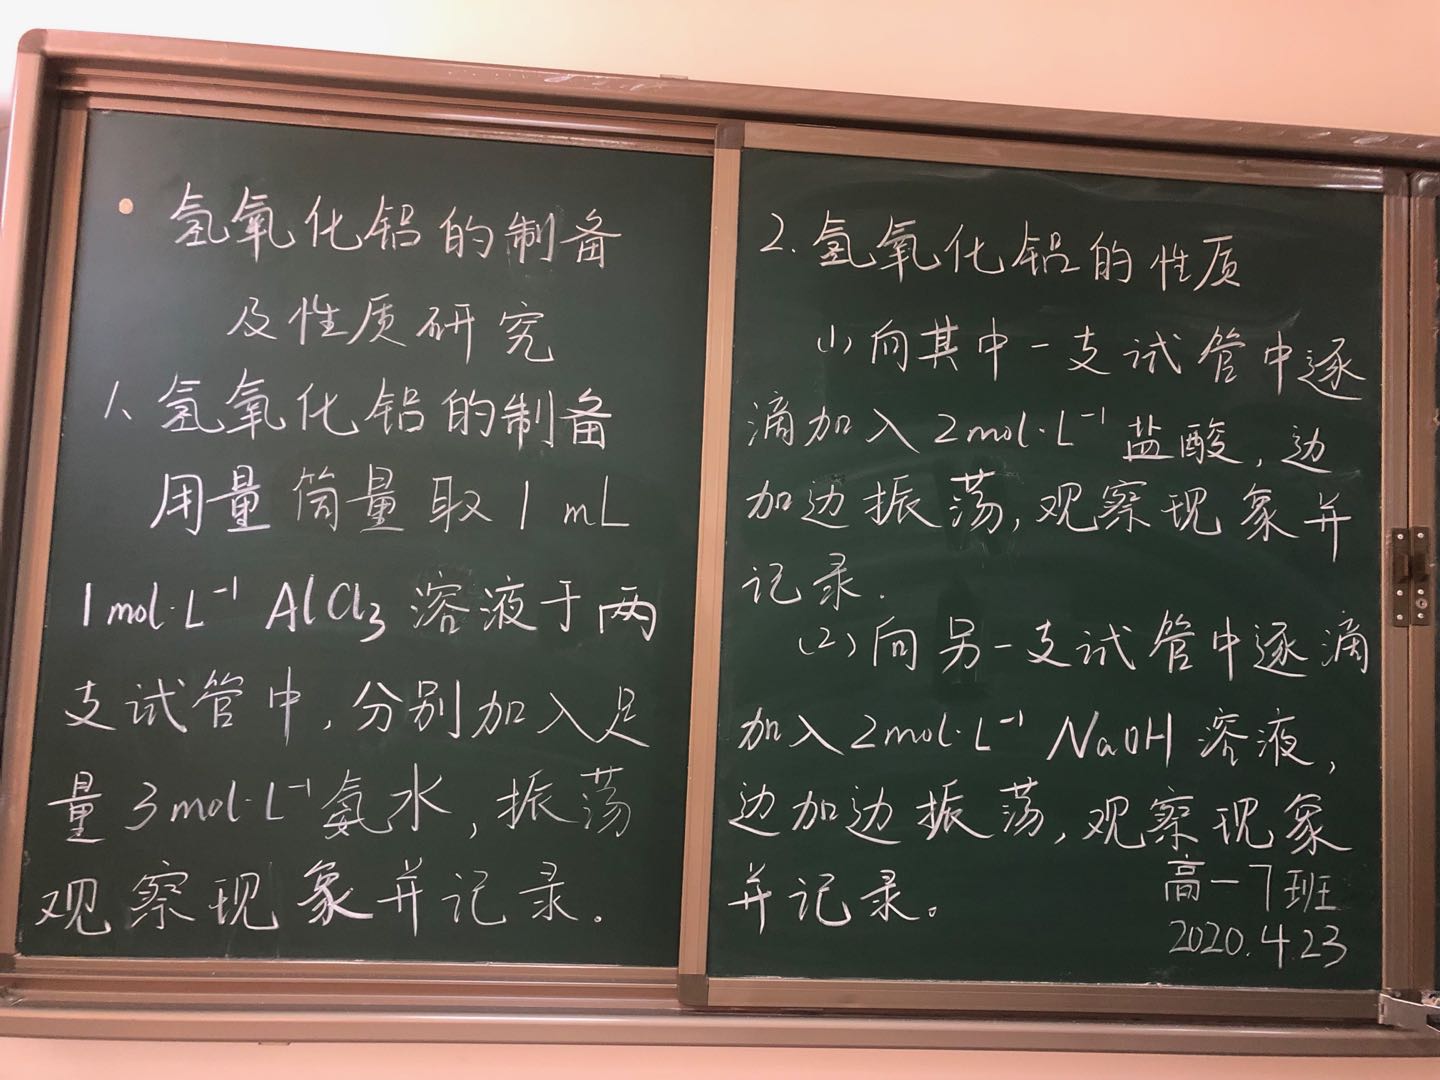 氢氧化铝的制备
及性质研究
1、氢氧化铝的制备
用量筒量取1mL
1mol·L⁻¹ AlCl₃溶液于两
支试管中,分别加入足
量3mol·L⁻¹氨水,振荡
观察现象并记录。
2.氢氧化铝的性质
(1)向其中一支试管中逐
滴加入2mol·L⁻¹盐酸,边
加边振荡,观察现象并
记录.
(2)向另一支试管中逐滴
加入2mol·L⁻¹ NaOH溶液,
边加边振荡,观察现象
并记录。
高一7班
2020.4.23